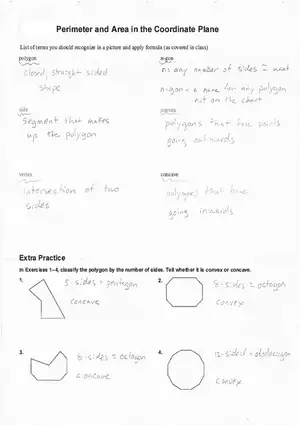 Perimeter and Area in the Coordinate Plane
List of terms you should recognize in a picture and apply formula (as covered in class)
polygon
closed, straight sided
shape
n-gon
n = any number of sides = next
n-gon = a name for any polygon
not on the chart
side
segment that makes
up the polygon
convex
polygons that have points
going outwards
vertex
intersection of two
sides
concave
polygons that have
going inwards
Extra Practice
In Exercises 1–4, classify the polygon by the number of sides. Tell whether it is convex or concave.
1.
5 sides = pentagon
concave
2.
8-sides = octagon
convex
3.
8-sides = octagon
concave
4.
12-sided =
convex